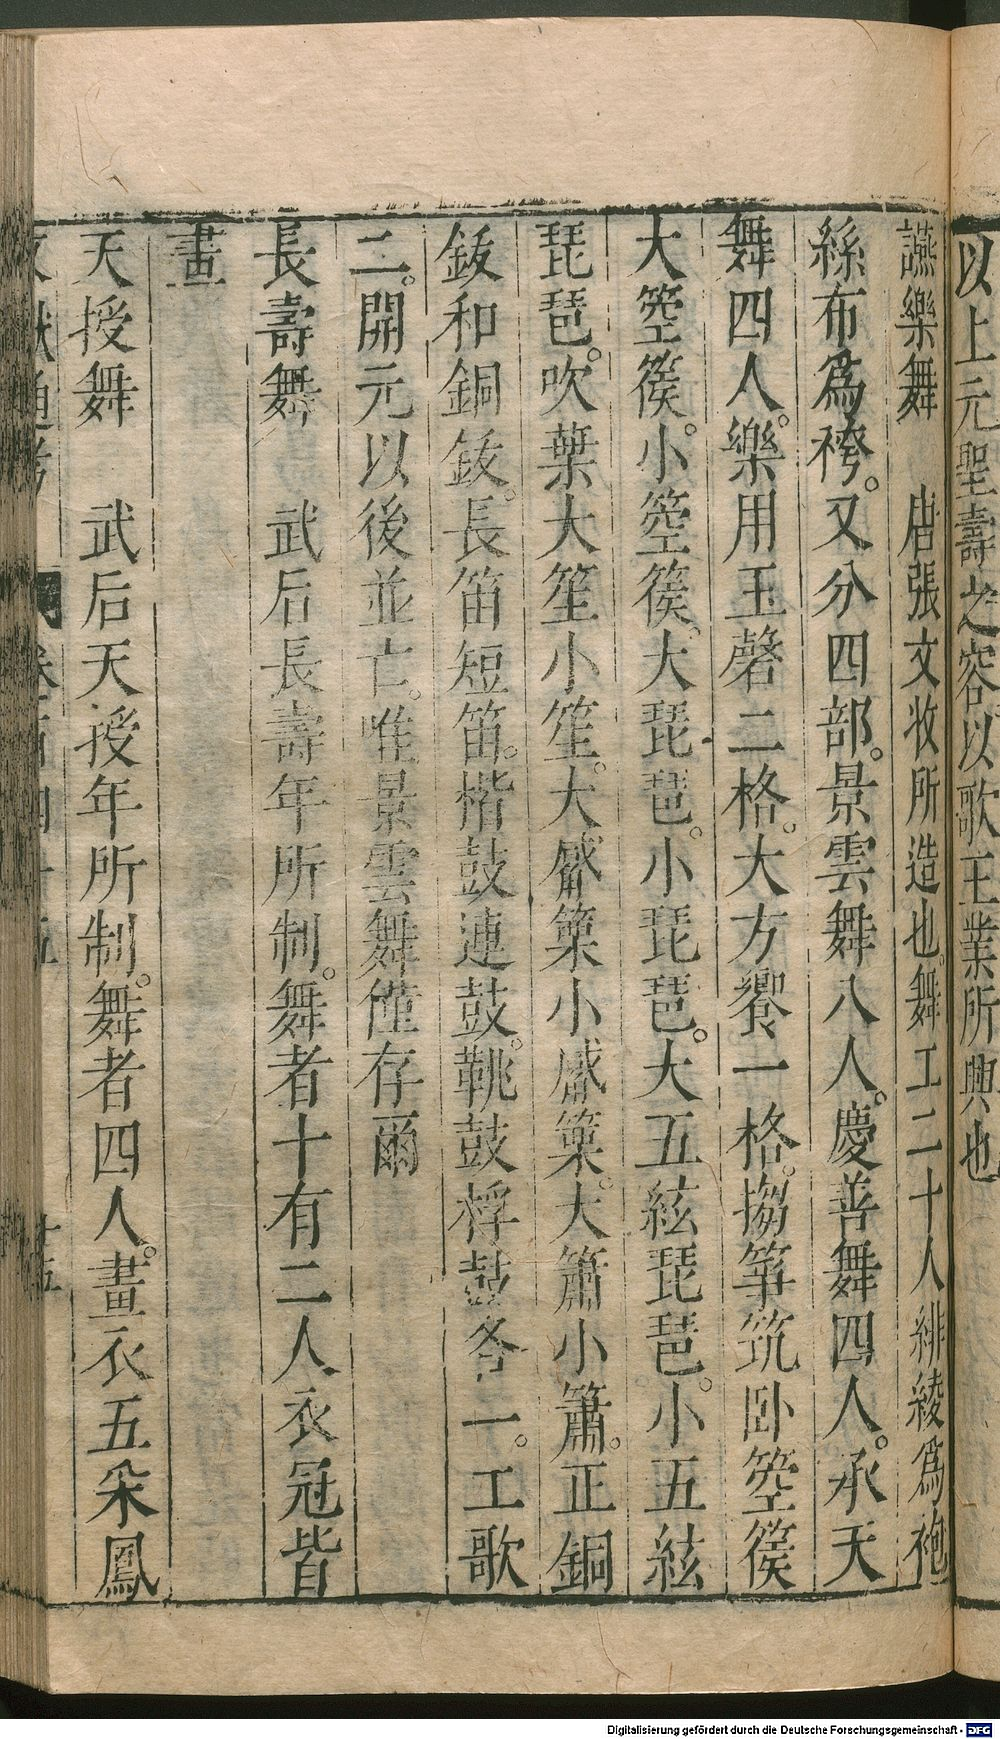 以上元聖壽之容以歌王業所興也
讌樂舞　唐張文收所造也。舞工二十人緋綾爲袍
絲布爲袴。又分四部。景雲舞八人。慶善舞四人。承天
舞四人。樂用玉磬二格。大方響一格。搊筝筑卧箜篌
大箜篌。小箜篌。大琵琶。小琵琶。大五絃琵琶。小五絃
琵琶。吹葉大笙小笙。大觱篥小觱篥。大簫小簫。正銅
鈸和銅鈸。長笛短笛。楷鼓連鼓。鞉鼓桴鼓各一。工歌
二。開元以後並亡。唯景雲舞僅存爾
長壽舞　武后長壽年所制。舞者十有二人衣冠皆
畫
天授舞　武后天授年所制。舞者四人。畫衣五朵鳳
Digitalisierung gefördert durch die Deutsche Forschungsgemeinschaft - DFG